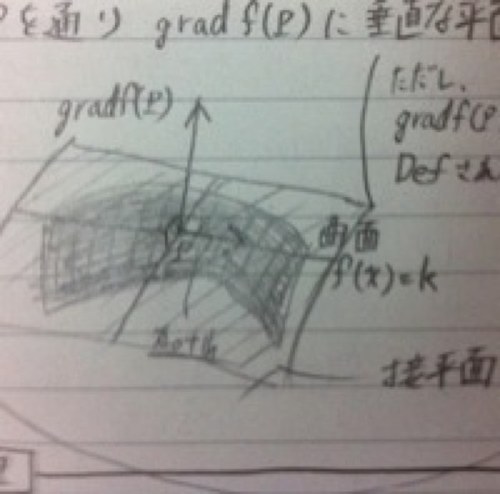 Pを通り grad f(P)に 垂直な平面
ただし、
gradf(P)
gradf(P
Defさ
P
曲面
f(x)=k
接平面